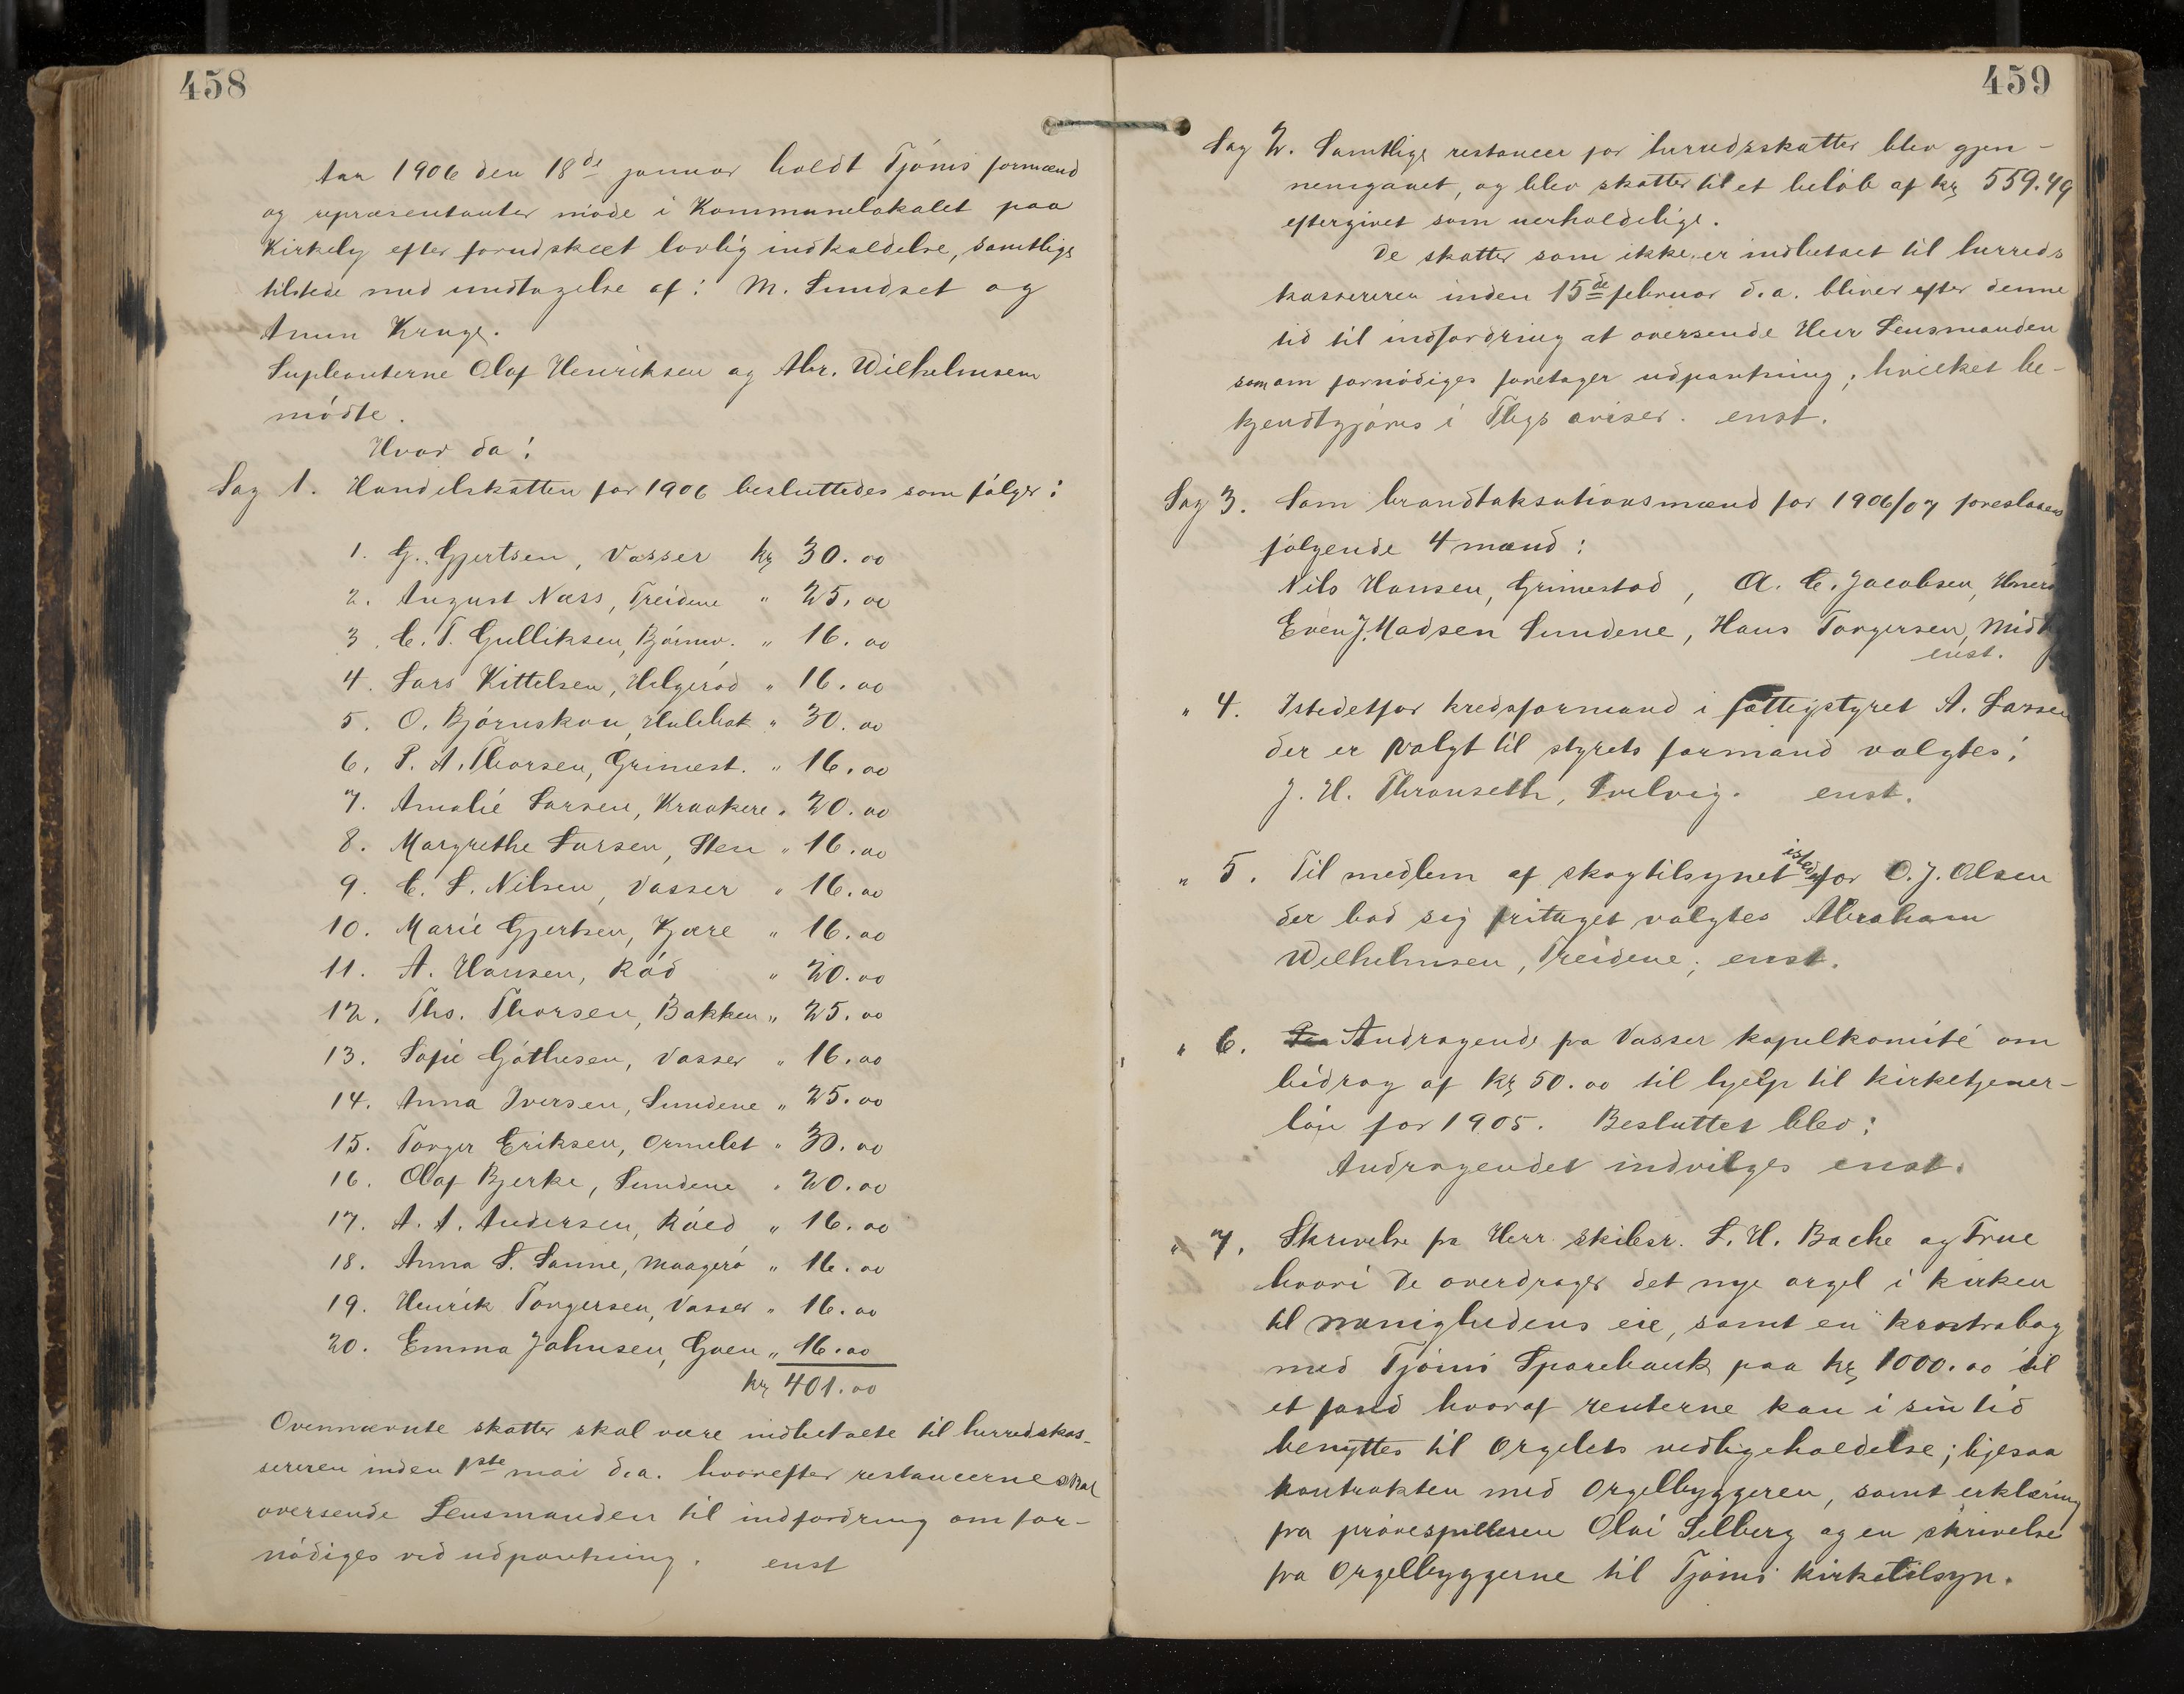 458
Aar 1906 den 18de januar holdt Tjømø formænd
og repræsentanter møde i Kommunelokalet paa
Kirkely efter forudskeet lovlig indkaldelse, samtlige
tilstede med undtagelse af: M. Sundset og
Anun Kruge.
Supleanterne Olaf Henriksen og Abr. Wilhelmsen
mødte.
Hvor da:
Sag 1. Handelskatten for 1906 besluttedes som følger:
1. G. Gjertsen, Vasser kr 30.00
2. August Næss, Treidene " 25.00
3. C. T. Gulliksen, Bjørnev. " 16.00
4. Lars Kittelsen, Helgerød " 16.00
5. O. Bjørnskau, Hulebak " 30.00
6. P. A. Thorsen, Grimest. " 16.00
7. Amalie Larsen, Kraakere " 20.00
8. Margrethe Larsen, Sten " 16.00
9. C. L. Nilsen, Vasser " 16.00
10. Marie Gjertsen, Kjære " 16.00
11. A. Hansen, Rød " 20.00
12. Ths. Thorsen, Bakken " 25.00
13. Sofie Gøthesen, Vasser " 16.00
14. Anna Iversen, Sundene " 25.00
15. Torger Eriksen, Ormelet " 30.00
16. Olaf Bjerke, Sundene " 20.00
17. A. A. Andersen, Røed " 16.00
18. Anna S. Sanne, Maagerø " 16.00
19. Henrik Torgersen, Vasser " 16.00
20. Emma Johnsen, Goen " 16.00
kr 401.00
Ovennævnte skatter skal være indbetalte til herredskas-
sereren inden 1ste mai d.a. hvorefter restancerne skal
oversende Lensmanden til indfordring om for-
nødiges ved udpantning. enst
459
Sag 2. Samtlige restancer for herredsskatter blev gjen-
nemgaaet, og blev skatter til et beløb af kr 559.49
eftergivet som uerholdelige.
De skatter som ikke er indbetalt til herreds
kassereren inden 15de februar d.a. bliver efter denne
tid til indfordring at oversende Herr Lensmanden
som om fornødiges foretager udpantning; hvilket be-
kjendtgjøres i Tbgs aviser. enst.
Sag 3. Som brandtaksationsmænd for 1906/07 foreslaaes
følgende 4 mænd:
Nils Hansen, Grimestad, A. C. Jacobsen,
Even J. Madsen Sundene, Hans Torgersen,
enst.
" 4. Istedetfor kredsformand i fattigstyret A. Larsen
der er valgt til styrets formand valgtes:
J. H. Thronseth, Svelvig. enst.
" 5. Til medlem af skogtilsynet istedetfor O. J. Olsen
der bad sig fritaget valgtes Abraham
Wilhelmsen, Treidene; enst.
" 6. Andragende fra Vasser kapelkomité om
bidrag af kr 50.00 til hjelp til kirketjener-
løn for 1905. Besluttet blev:
Andragendet indvilges enst.
" 7. Skrivelse fra Herr skibsr. S. H. Bache og Frue
hvori De overdrager det nye orgel i kirken
til menighedens eie, samt en kontrabog
med Tjømø Sparebank paa kr 1000.00 til
et fond hvoraf renterne kan i sin tid
benyttes til Orgelets vedligeholdelse; ligesaa
kontrakten med Orgelbyggeren, samt erklæring
fra prøvespilleren Olai Selberg og en skrivelse
fra Orgelbyggerne til Tjømø kirketilsyn.